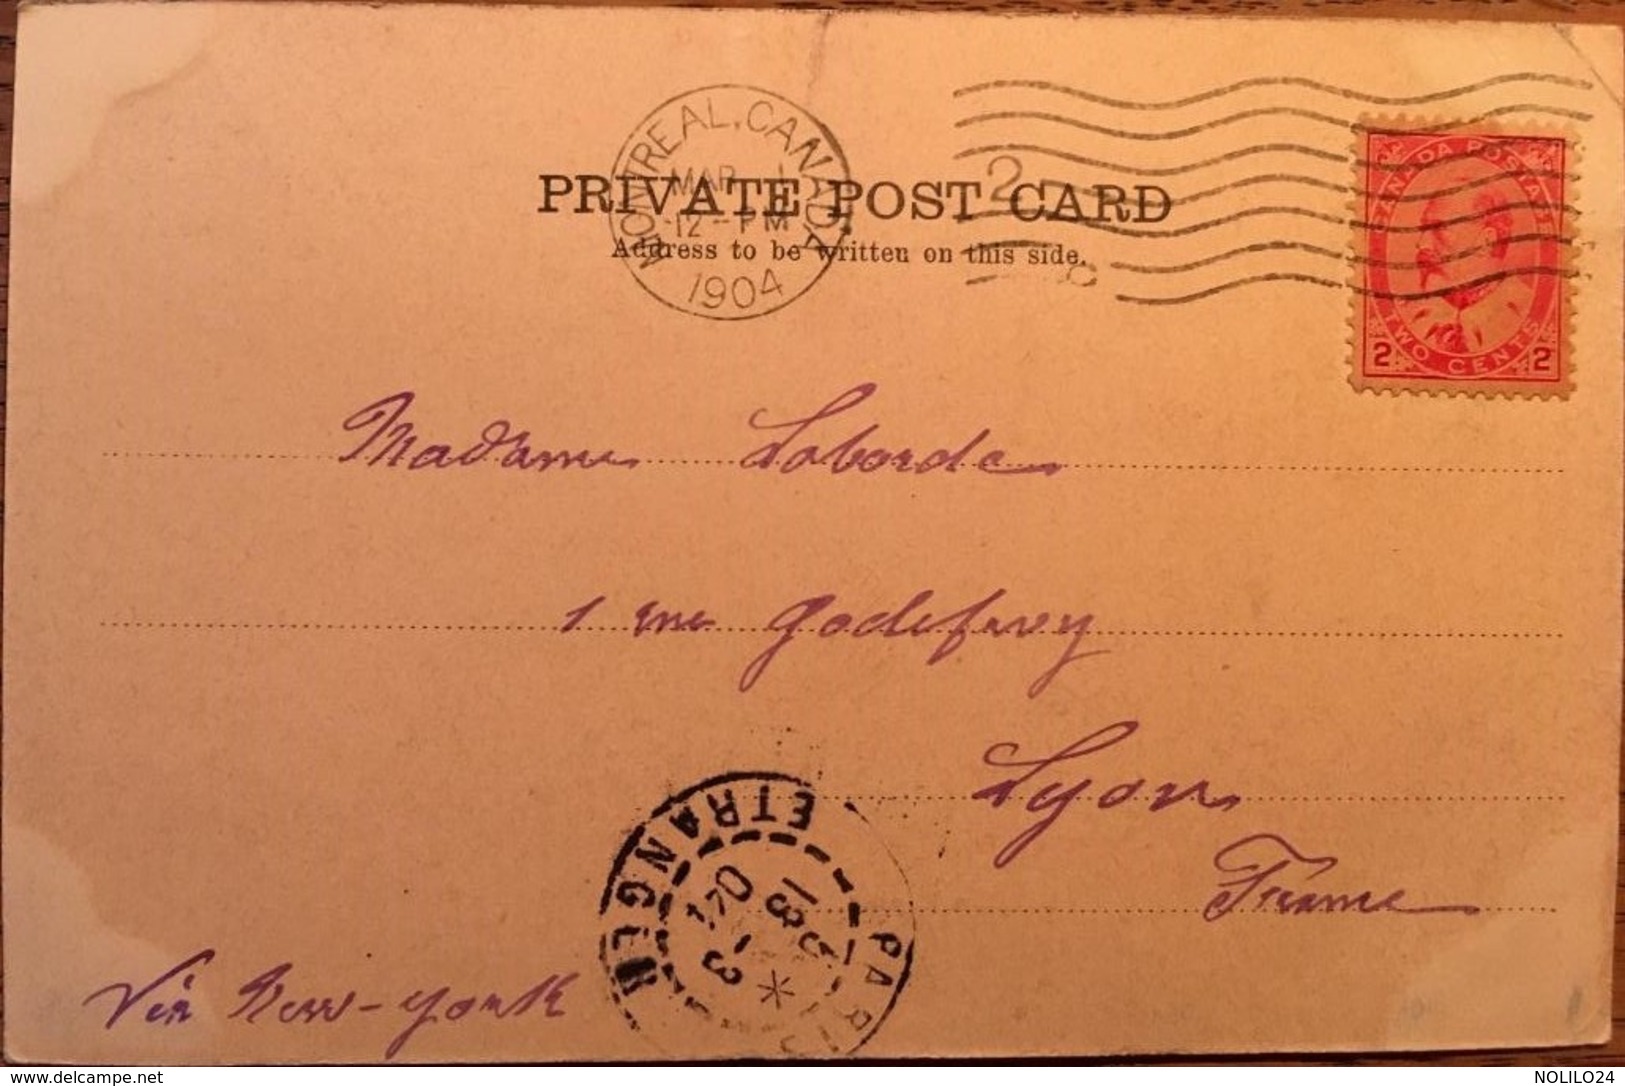 MONTREAL, CANADA
MAR 1
12 - PM
1904
PRIVATE POST CARD
Address to be written on this side.
2
CANADA POSTAGE
TWO CENTS
2 2
Madame Laborde
1 rue Godefroy
Lyon
France
Via New-York
PARIS ETRANGER
13 - 3
04
www.delcampe.net
NOLILO24